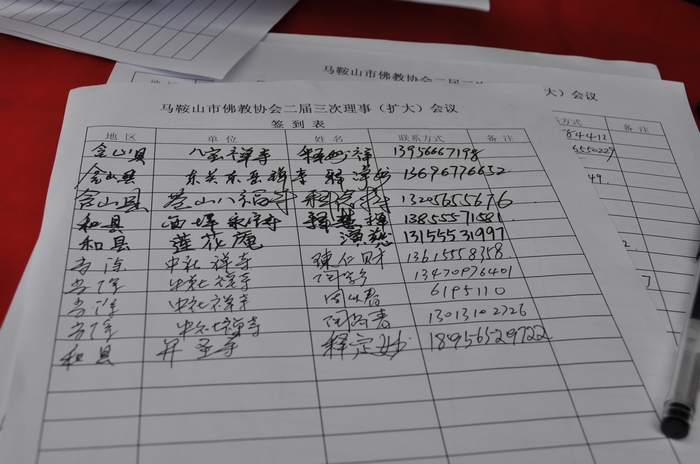 马鞍山市佛教协会二届
大）会议
方式 备注
84412
6552229
49.
马鞍山市佛教协会二届三次理事（扩大）会议
签到表
地区 单位 姓名 联系方式 备注
含山县 八宝禅寺 释妙祥 13956667198
含山县 东关东岳禅寺 释 13696776652
含山县 苍山八福寺 释 13205655676
和县 西埠永寿寺 释慧禅 13855571581
和县 莲花庵 演慈 13155531997
当涂 中社禅寺 陈仁财 13615558358
当涂 中社禅寺 13470976401
当涂 中社禅寺 6195110
当涂 中社禅寺 13013102226
和县 开圣寺 释定妙 18956529722